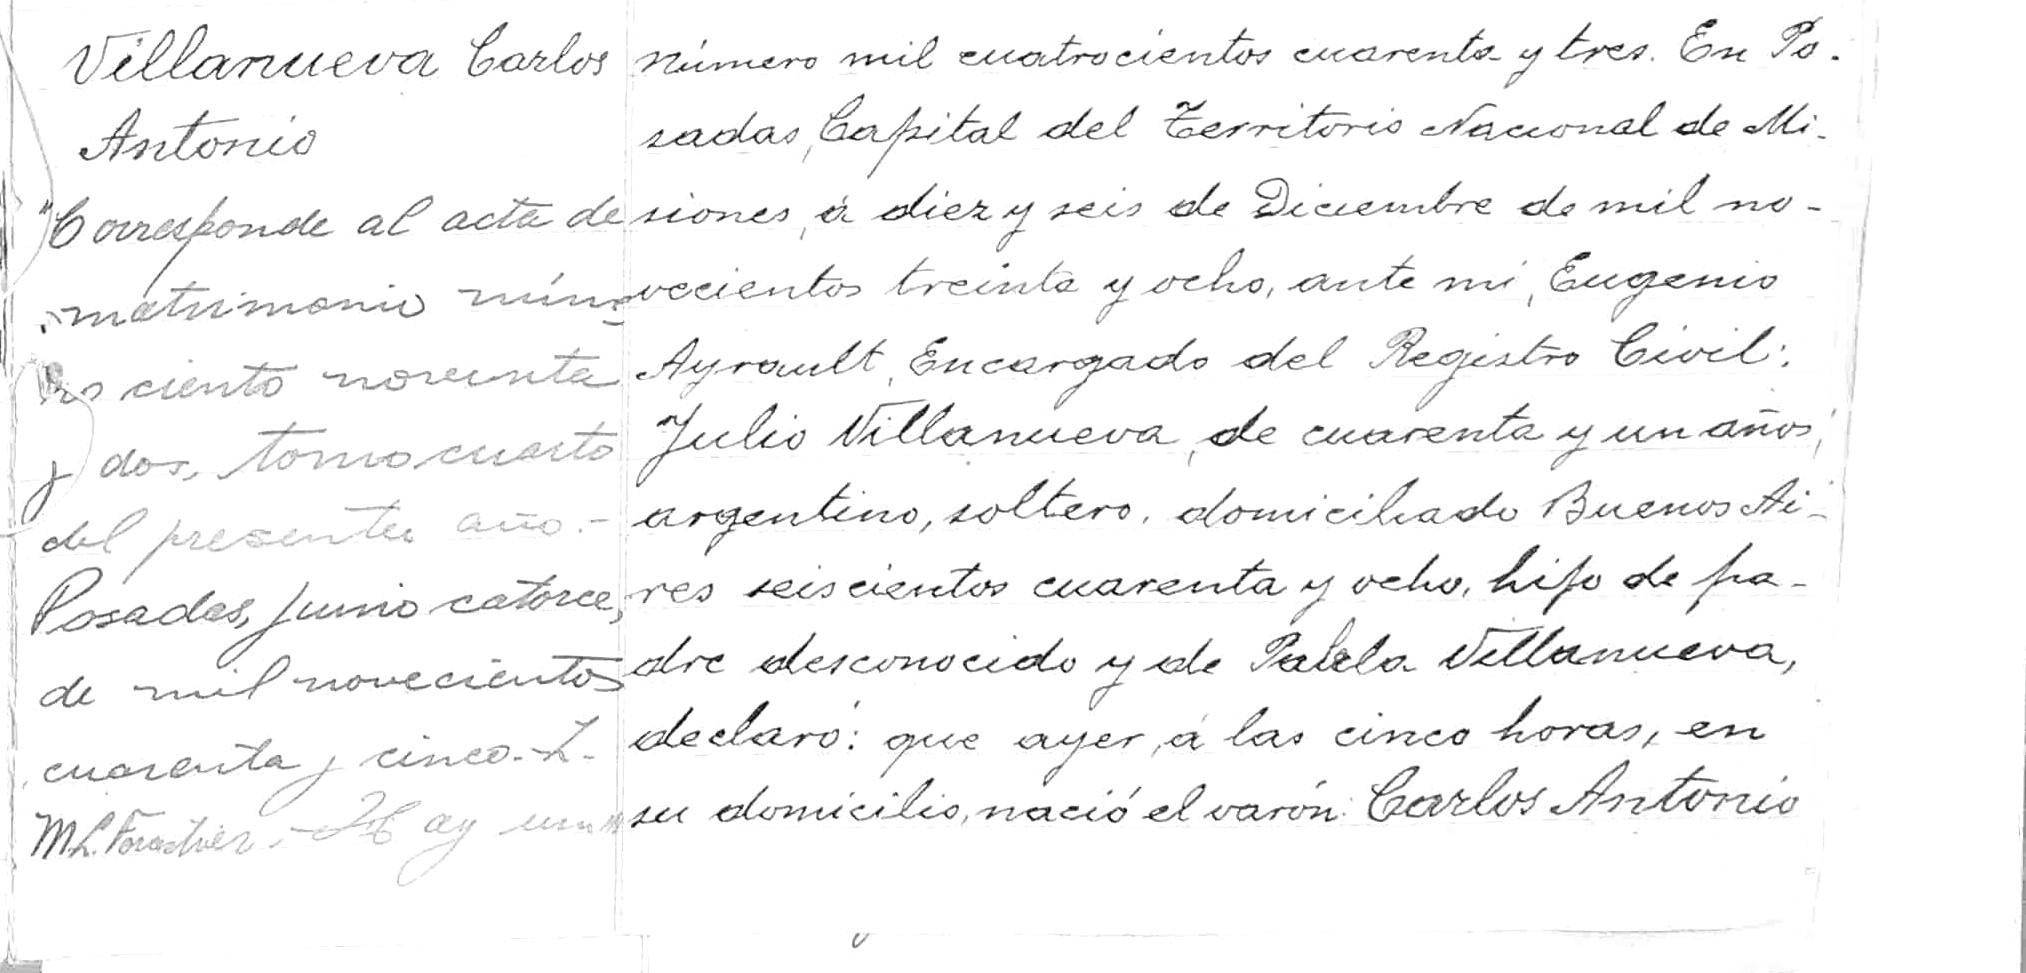 Villanueva Carlos
Antonio
"Corresponde al acta de
matrimonio núme
ro ciento noventa
y dos, tomo cuarto
del presente año.-
Posadas, Junio catorce,
de mil novecientos
cuarenta y cinco.-L-
M.L. Forestier.- Hay un
número mil cuatrocientos cuarenta y tres. En Po-
sadas, Capital del Territorio Nacional de Mi-
siones, á diez y seis de Diciembre de mil no-
vecientos treinta y ocho, ante mí, Eugenio
Ayrault, Encargado del Registro Civil:
Julio Villanueva, de cuarenta y un años,
argentino, soltero, domiciliado Buenos Ai-
res seiscientos cuarenta y ocho, hijo de pa-
dre desconocido y de Villanueva,
declaró: que ayer, á las cinco horas, en
su domicilio, nació el varón: Carlos Antonio